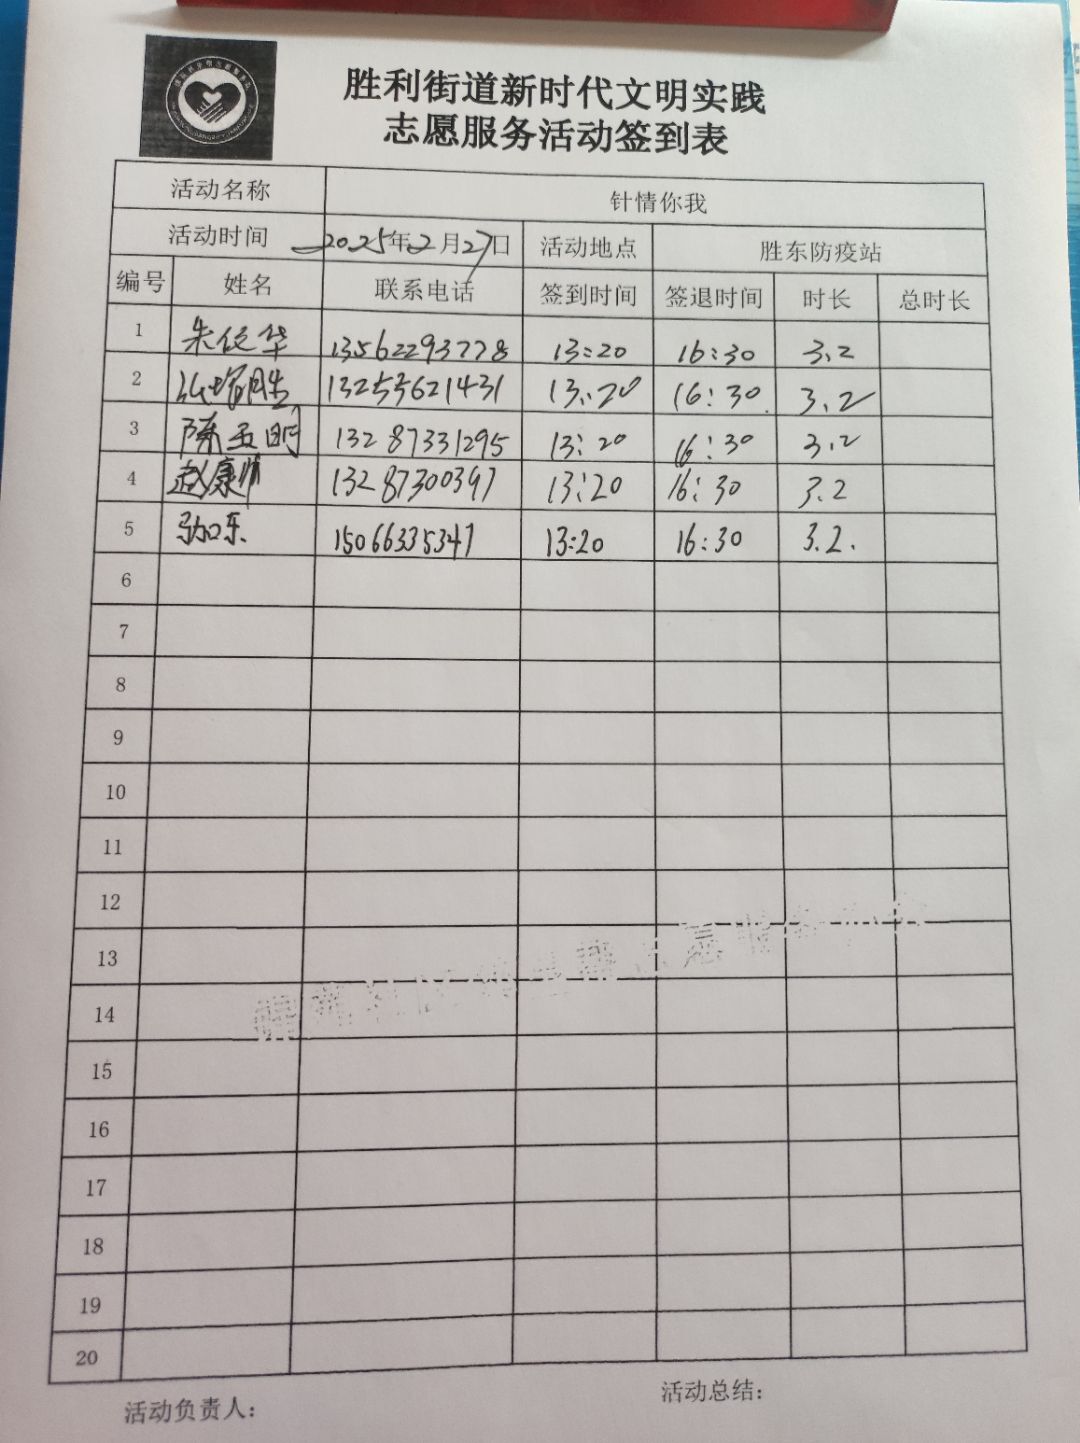 胜利街道新时代文明实践
志愿服务活动签到表
活动名称 针情你我
活动时间 2025年2月27日 活动地点 胜东防疫站
编号 姓名 联系电话 签到时间 签退时间 时长 总时长
1 朱 华 13562293778 13:20 16:30 3.2
2 13255621431 13:20 16:30 3.2
3 陈玉明 13287331295 13:20 16:30 3.2
4 赵康 13287300397 13:20 16:30 3.2
5 东 15066335347 13:20 16:30 3.2.
6
7
8
9
10
11
12
13
14
15
16
17
18
19
20
活动负责人: 活动总结: